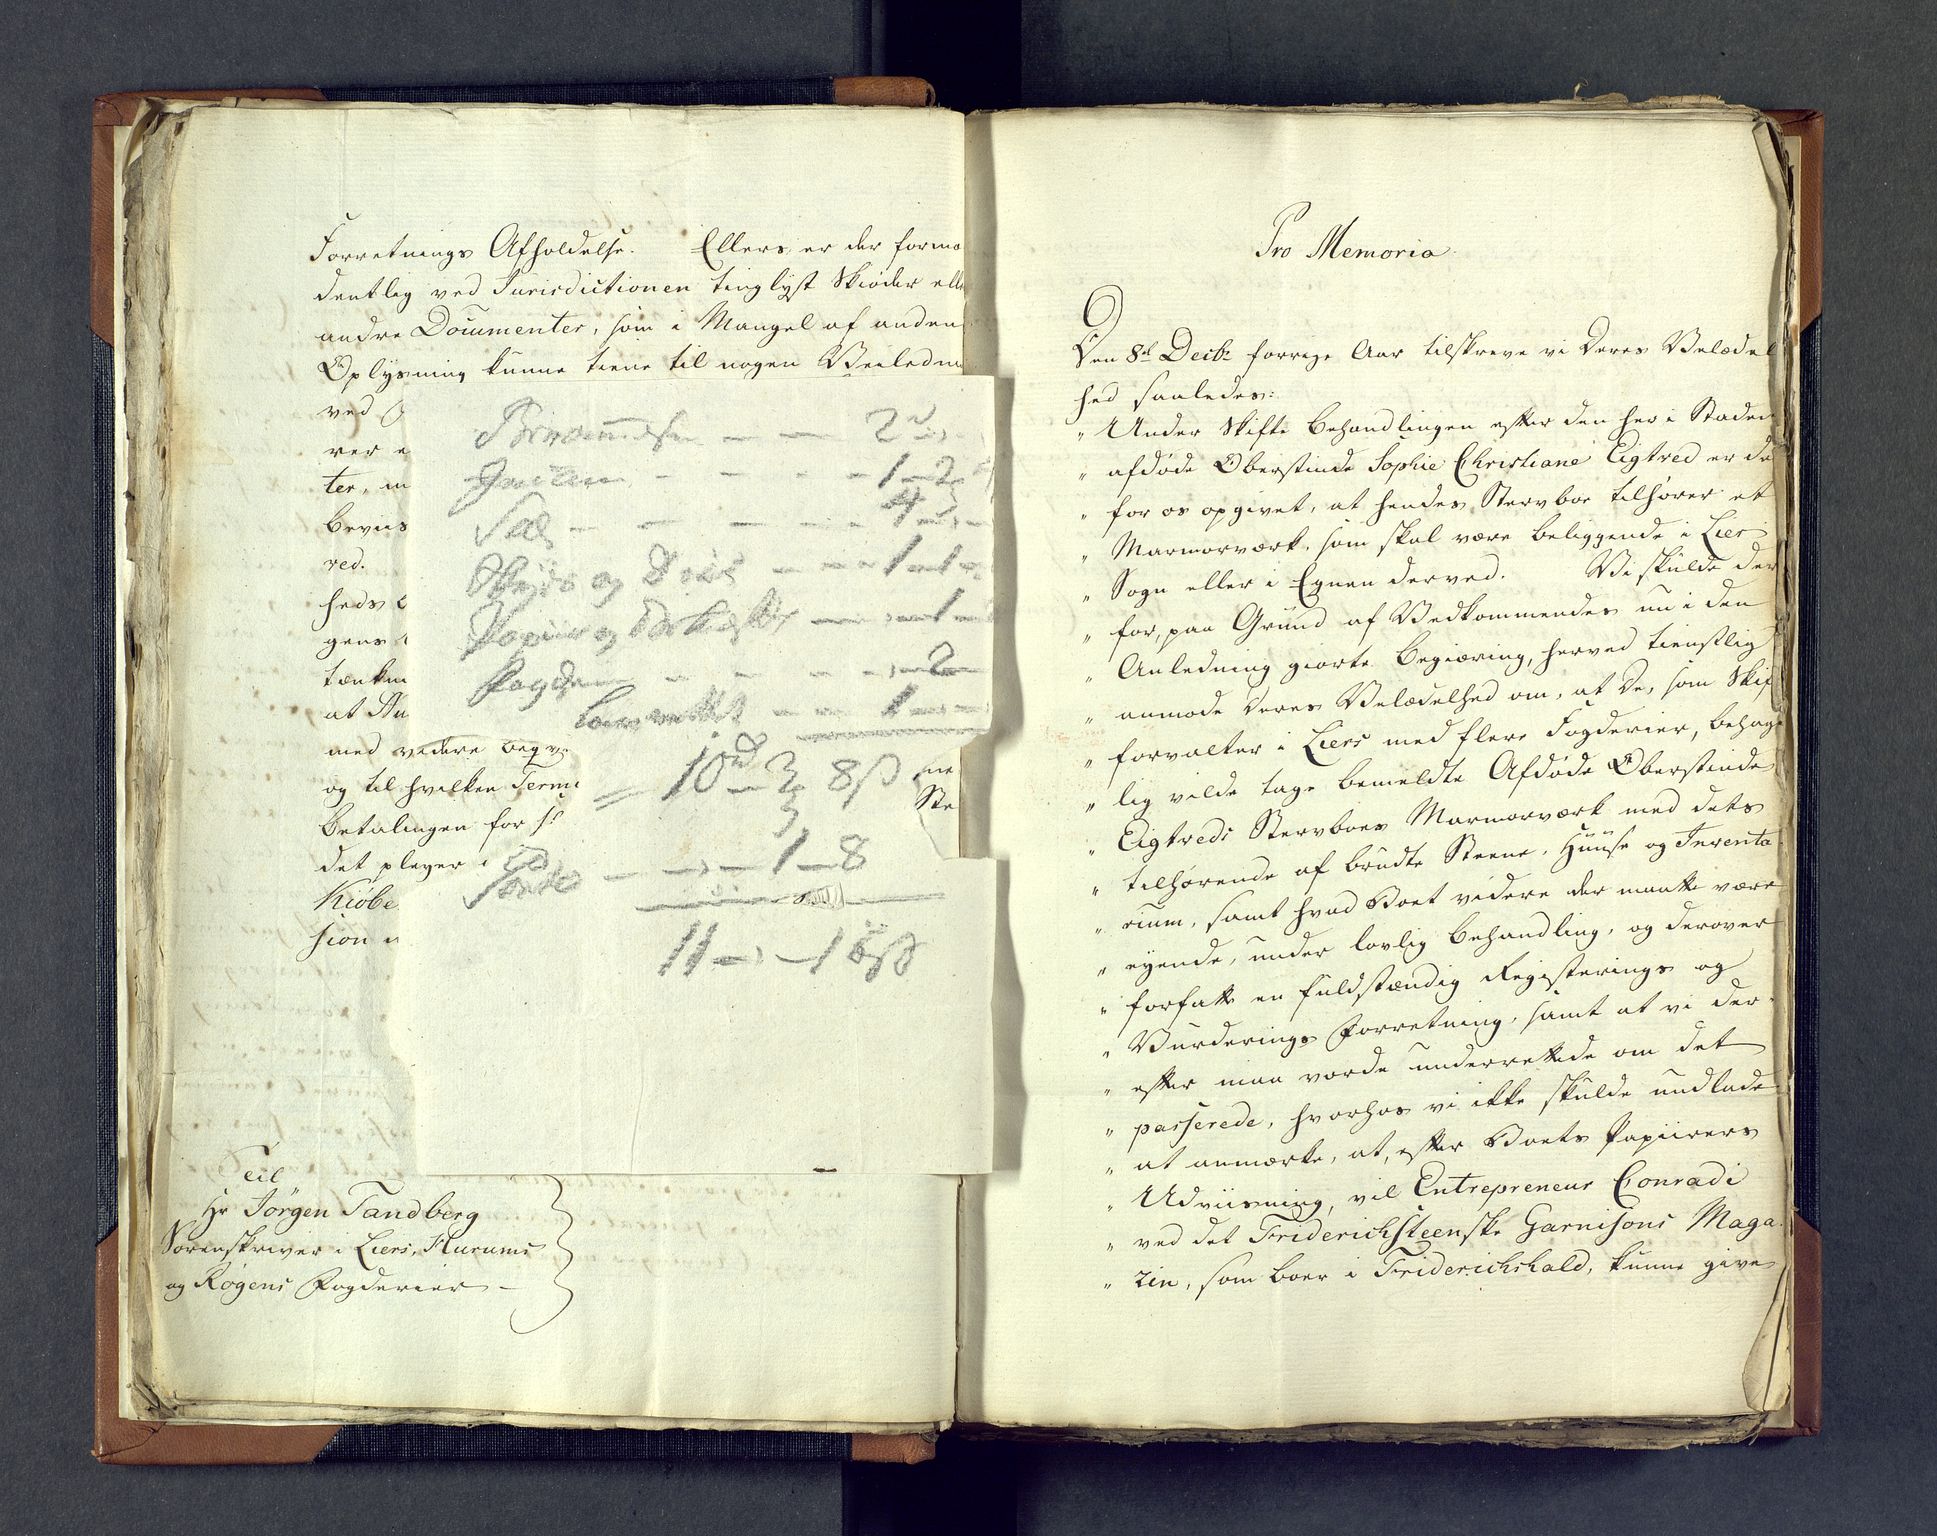 Forretnings Afholdelse. Ellers er der formo
dentlig ved Jurisdictionen tinglyst Skiøder elle
andre Documenter, som i Mangel af anden
Oplysning kunne tiene til nogen Veiledni
ved
ver e
ter, m
beviis
red.
heds
gens
tænkni
at Au
med videre begv.
og til hvilken Termi
betalingen for
det pleyer i
Kiøbe
sion u
ene
Ste
Til
Hr Jørgen Tandberg
Sorenskriver i Liers, Hurums
og Røgens Fogderier
2
1 - 2
4
og 1 - 1
Papiir og 1
2
1
10 - 2 8 ß
1 - 8
11 - 1
Pro Memoria
Den 8de Decbr forrige Aar tilskreve vi Deres Velædel
hed saaledes:
„ Under Skifte Behandlingen efter den her i Staden
„ afdøde Oberstinde Sophie Christiane Eigtved er de
„ for os opgivet, at hendes Stervboe tilhører et
„ Marmorværk, som skal være beliggende i Lier
„ Sogn eller i Egnen derved. Vi skulde der
„ for, paa Grund af Vedkommendes nu i den
„ Anledning giorte Begiæring, herved tienstlig
„ anmode Deres Velædelhed om, at De, som Skif
„ forvalter i Liers med flere Fogderier, behage
„ lig vilde tage bemeldte Afdøde Oberstinde
„ Eigtveds Stervboes Marmorværk med dets
„ tilhørende af brudte Steene, Huuse og Inventa
„ rium, samt hvad Boet videre der maatte være
„ eyende, under lovlig Behandling, og derover
„ forfatte en fuldstændig Registerings og
„ Vurderings Forretning, samt at vi der
„ efter maa vorde underrettede om det
„ passerede, hvorhos vi ikke skulde undlade
„ at anmærke, at, efter Boets Papiirers
„ Udviisning, vil Entrepreneur Conradi
„ ved det Friderichsteenske Garnisons Maga
„ zin, som boer i Friderichshald, kunne give